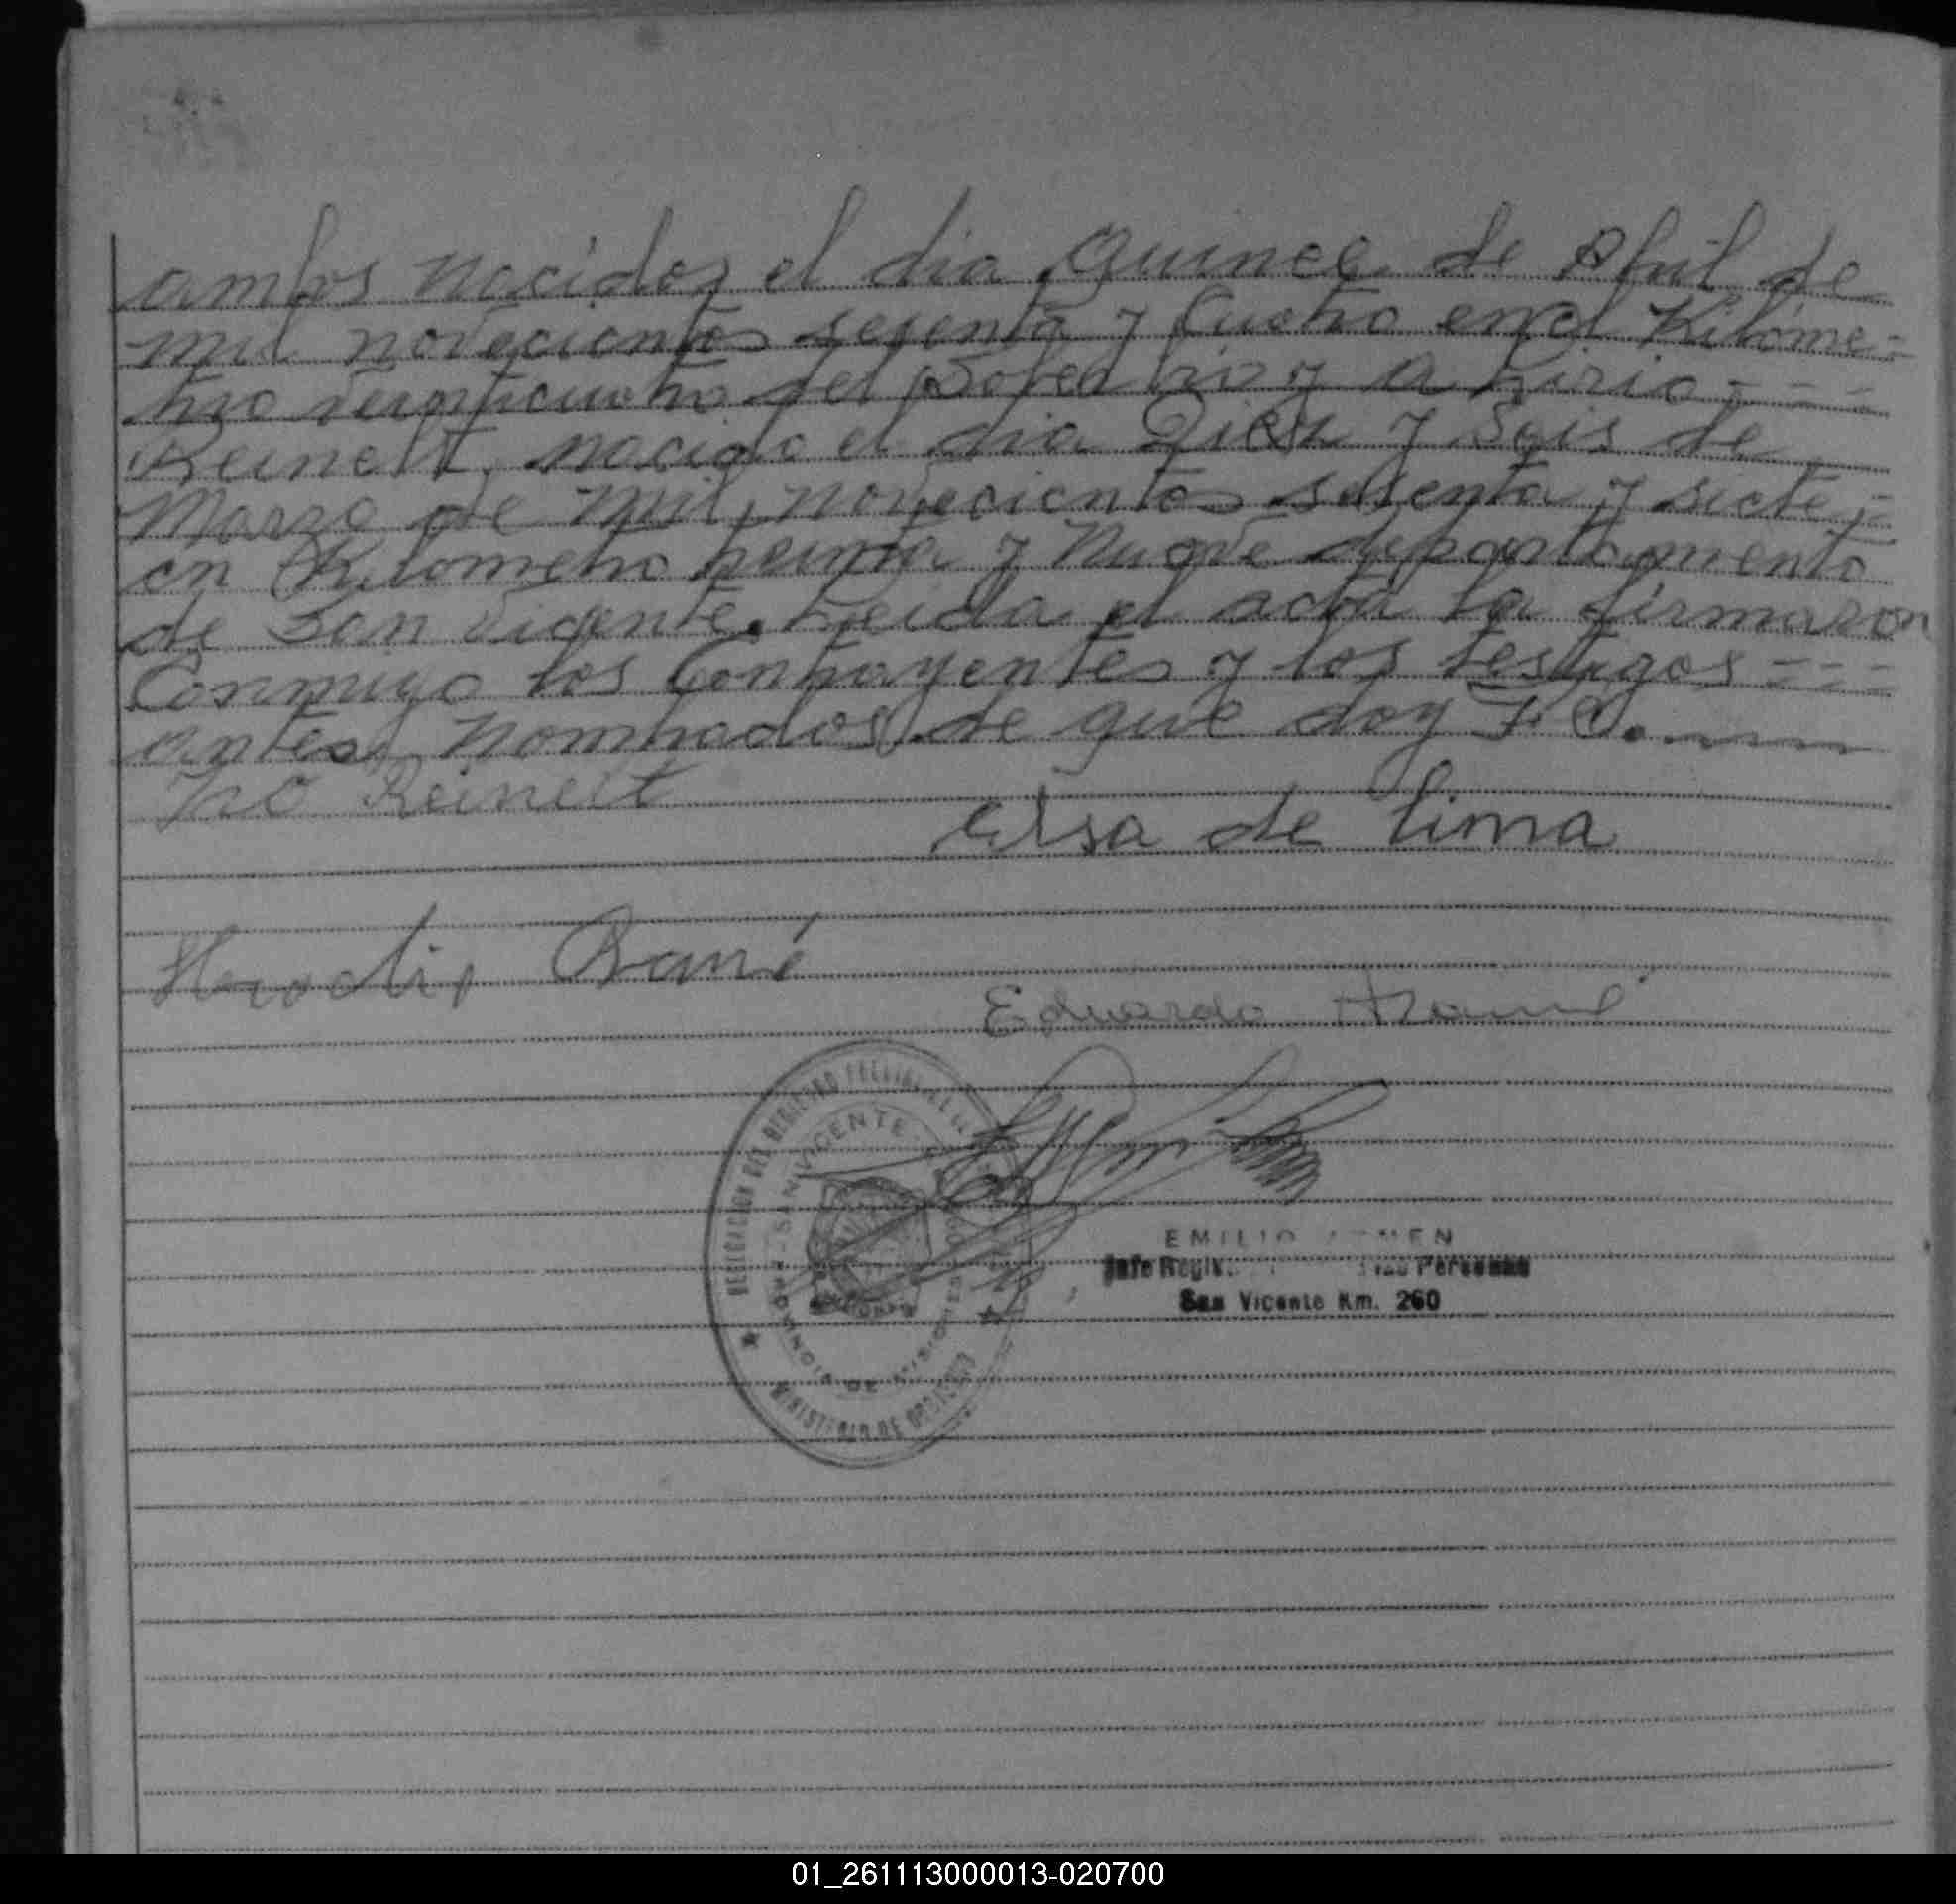 ambos nacidos el dia Quince de Abril de
mil novecientos sesenta y Cuatro en el Kilóme-
tro veinticuatro del y a Lirio - - -
Reinelt, nacido el dia Diez y Seis de
Marzo de mil novecientos sesenta y siete,-
en Kilometro treinta y Nueve departamento
de San Vicente. Leida el acta la firmaron
Conmigo los Contrayentes y los testigos - - -
antes Nombrados de que doy Fé.
Reinelt
elsa de lima
Eduardo
DELEGACION DEL REGISTRO
SAN VICENTE
PROVINCIA DE MISIONES
MINISTERIO DE GOBIERNO
EMILIO
Jefe Personas
San Vicente Km. 260
01_261113000013-020700